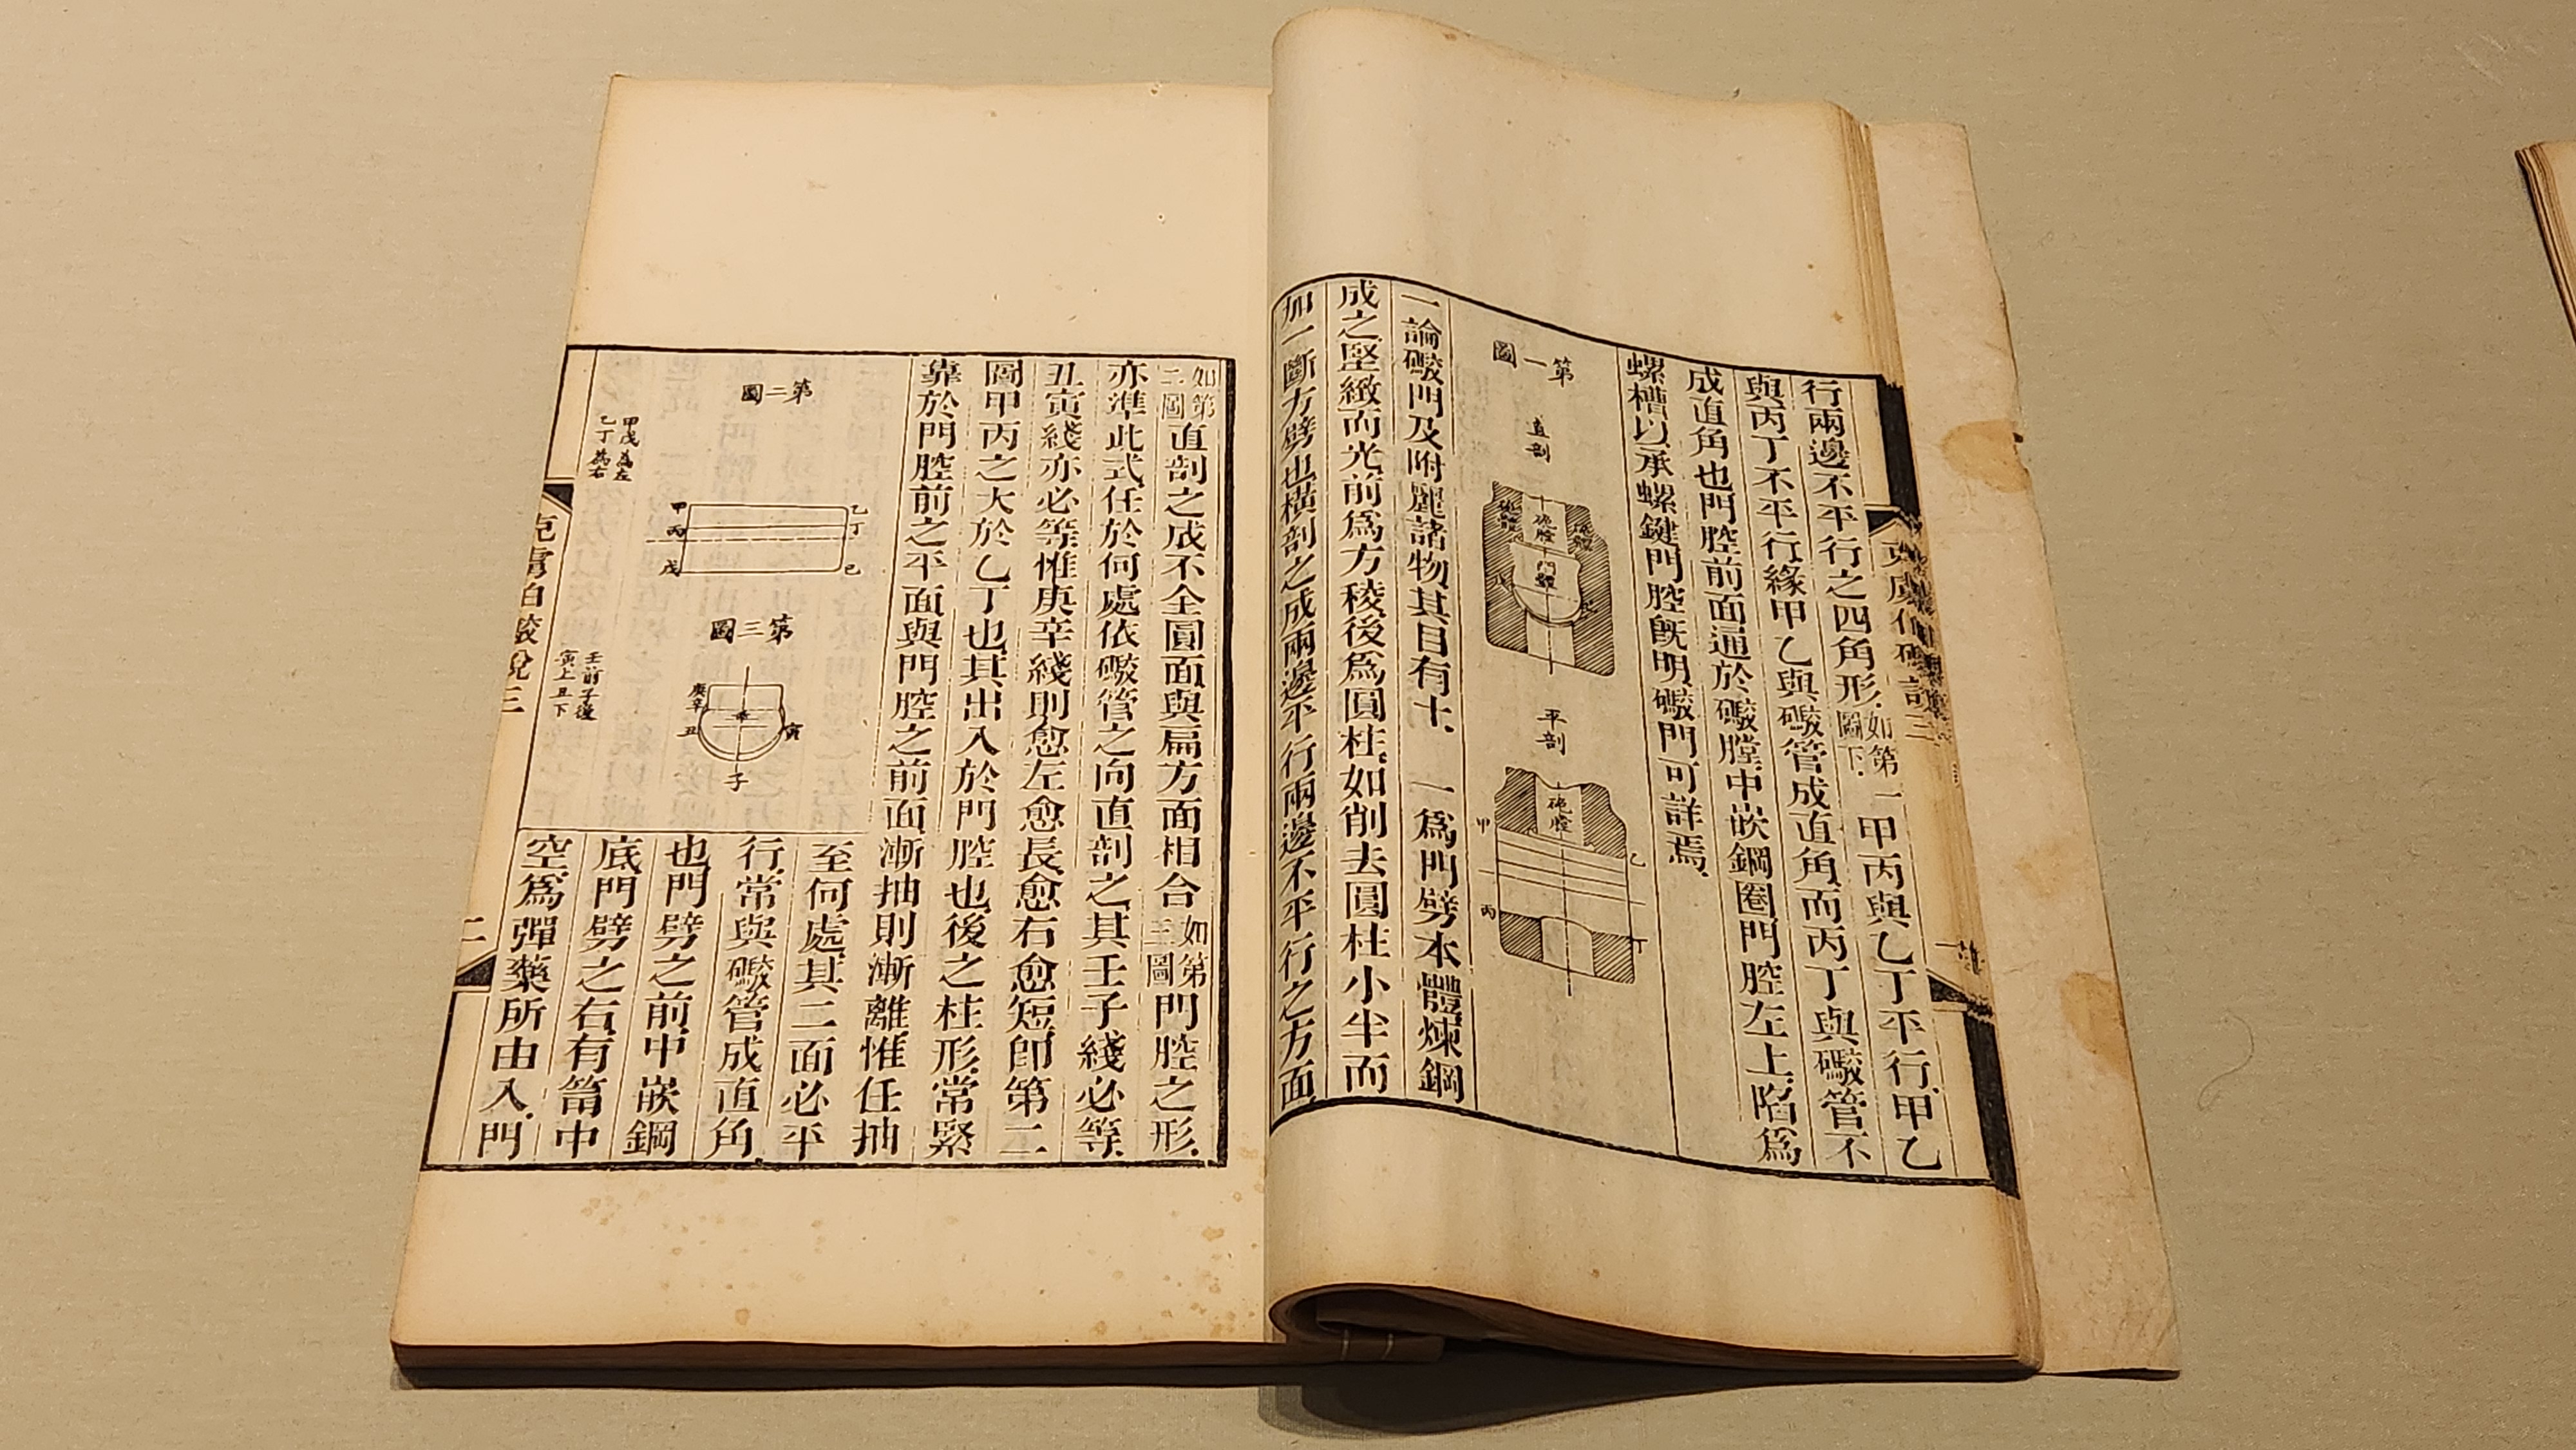 行兩邊不平行之四角形如第一圖下甲丙與乙丁平行甲乙
與丙丁不平行緣甲乙與礮管成直角而丙丁與礮管不
成直角也門腔前面通於礮膛中嵌鋼圈門腔左上陷爲
螺槽以承螺鍵門腔既明礮門可詳焉
第一圖
直剖
砲膛
門體
平剖
砲膛
甲
乙
丙
丁
一論礮門及附麗諸物其目有十 一爲門劈本體煉鋼
成之堅緻而光前爲方稜後爲圓柱如削去圓柱小半而
加一斷方劈也橫剖之成兩邊平行兩邊不平行之方面
如第二圖直剖之成不全圓面與扁方面相合如第三圖門腔之形
亦準此式任於何處依礮管之向直剖之其壬子綫必等
丑寅綫亦必等惟庚辛綫則愈左愈長愈右愈短卽第二
圖甲丙之大於乙丁也其出入於門腔也後之柱形常緊
靠於門腔前之平面與門腔之前面漸抽則漸離惟任抽
至何處其二面必平
行常與礮管成直角
也門劈之前中嵌鋼
底門劈之右有筩中
空爲彈藥所由入門
第二圖
甲戊爲左
乙丁爲右
甲
丙
戊
乙
丁
己
第三圖
壬前子後
寅上丑下
庚
辛
丑
寅
子
克虜伯礮說三
二